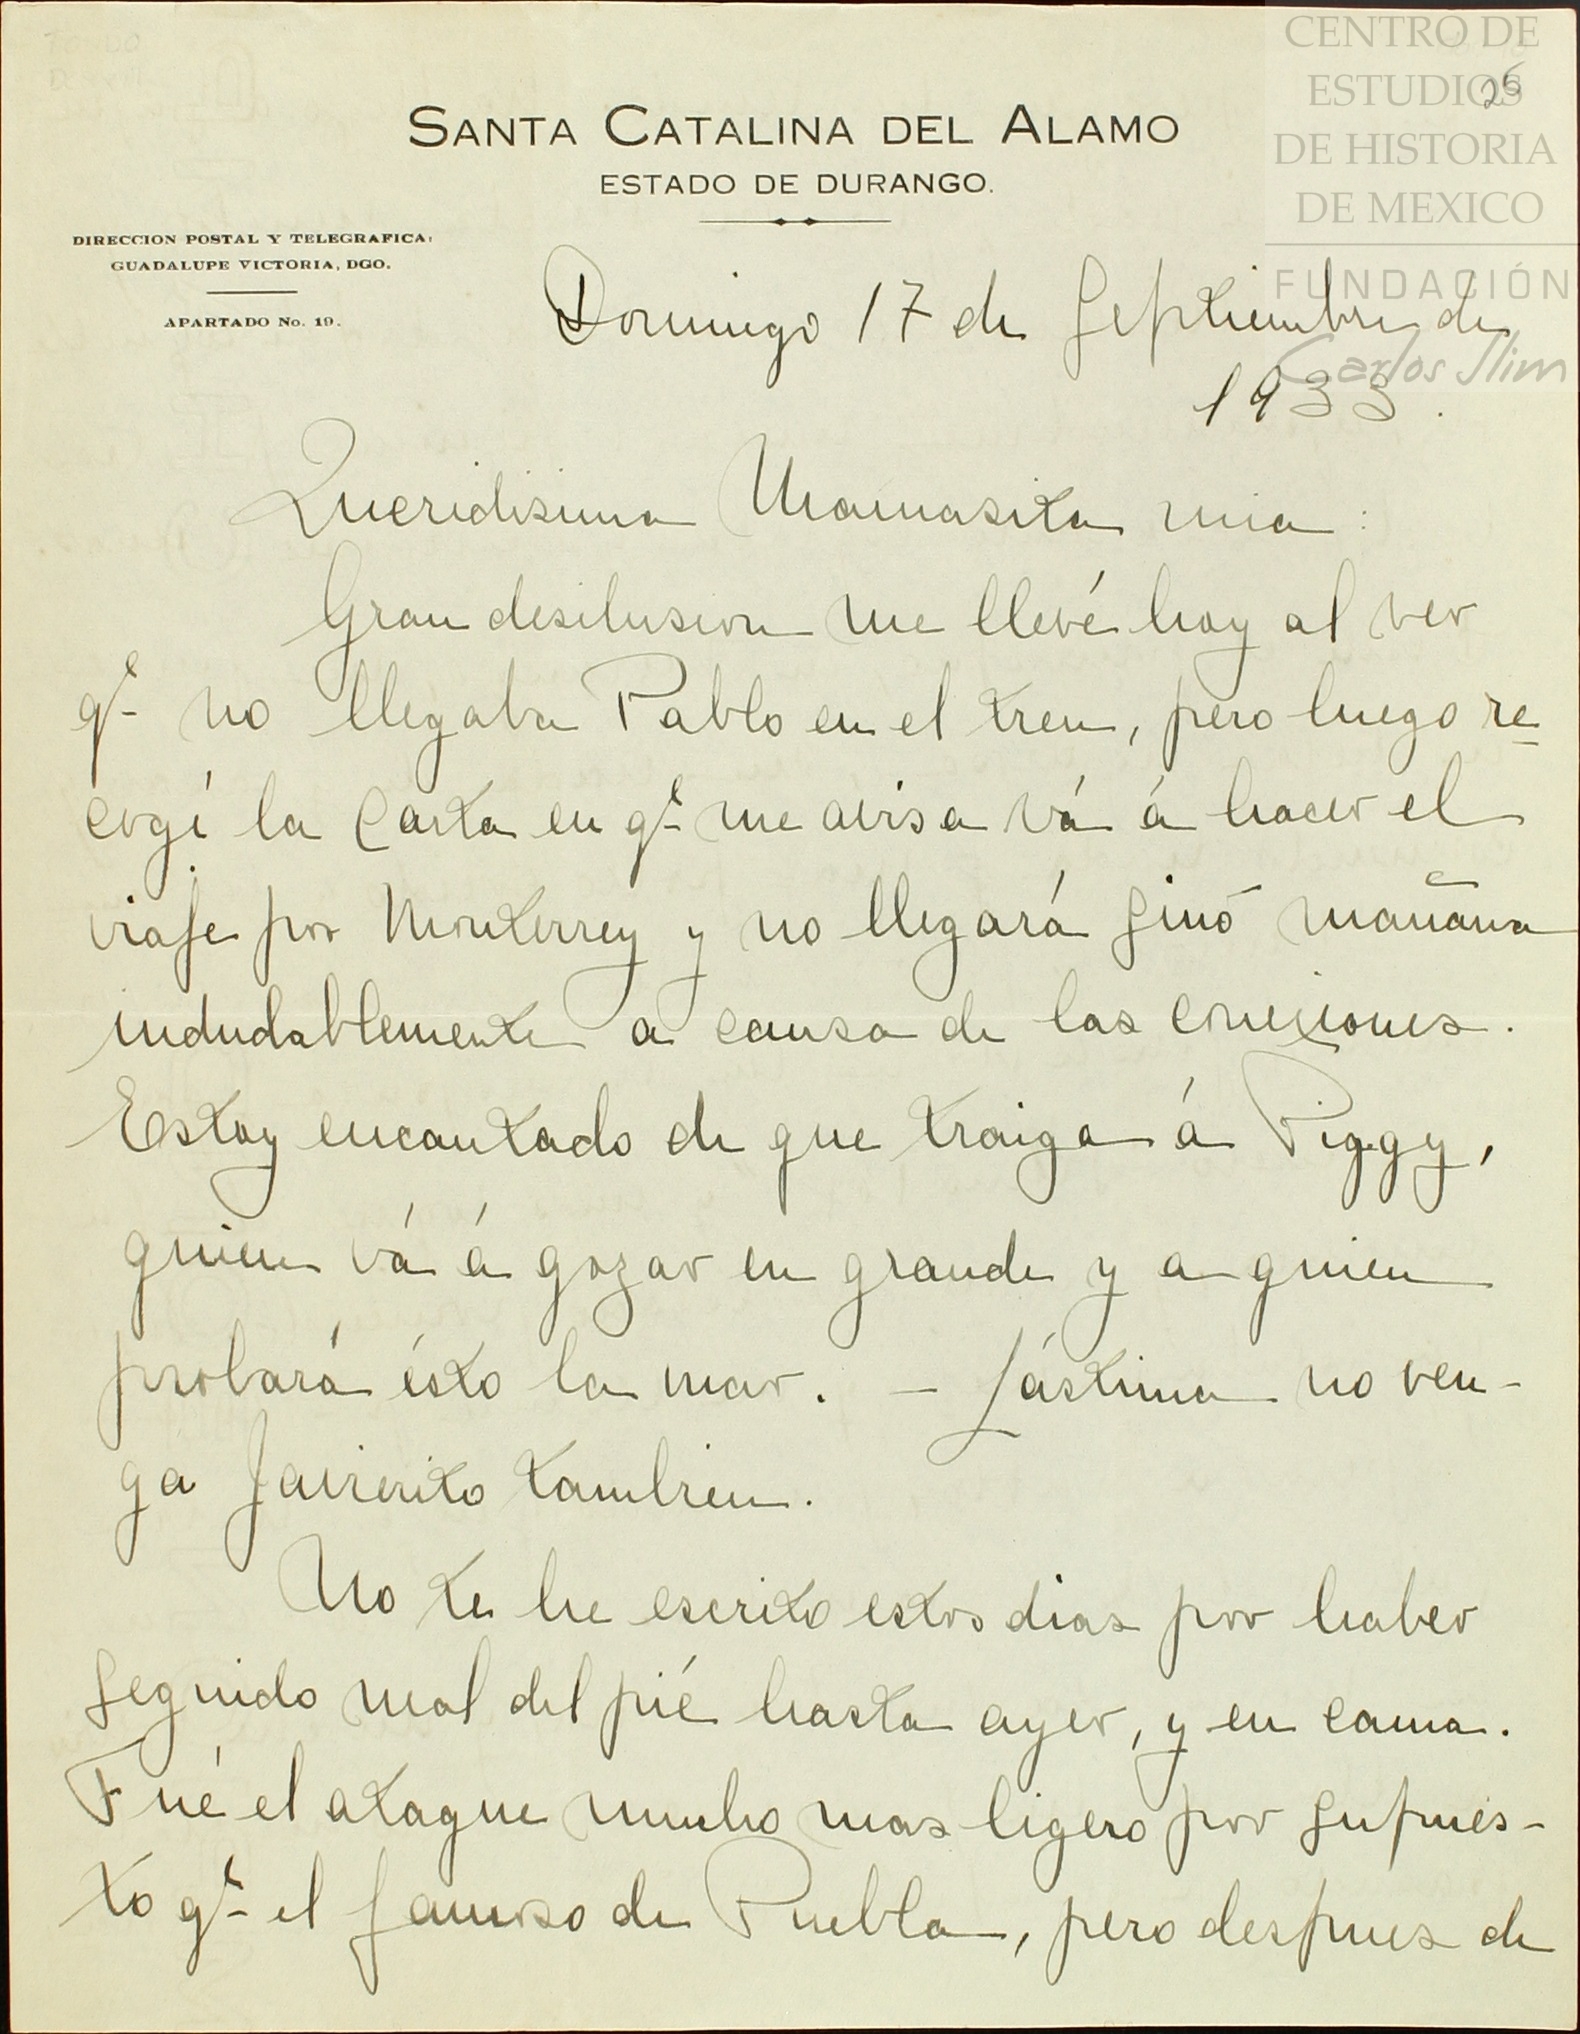 CENTRO DE
ESTUDIOS
DE HISTORIA
DE MEXICO
FUNDACIÓN
Carlos Slim
25
SANTA CATALINA DEL ALAMO
ESTADO DE DURANGO.
DIRECCION POSTAL Y TELEGRAFICA:
GUADALUPE VICTORIA, DGO.
APARTADO No. 19.
Domingo 17 de Septiembre de
1933.
Queridisima Mamasita mia:
Gran desilusion me llevé hoy al ver
qe no llegaba Pablo en el tren, pero luego re
cogí la carta en qe me avisa vá á hacer el
viaje por Monterrey y no llegará sinó mañana
indudablemente a causa de las conexiones.
Estoy encantado de que traiga á Piggy,
quien vá á gozar en grande y a quien
probará ésto la mar. – Lástima no ven-
ga Javierito tambien.
No te he escrito estos dias por haber
seguido mal del pié hasta ayer, y en cama.
Fué el ataque mucho mas ligero por supues-
to qe el famoso de Puebla, pero despues de